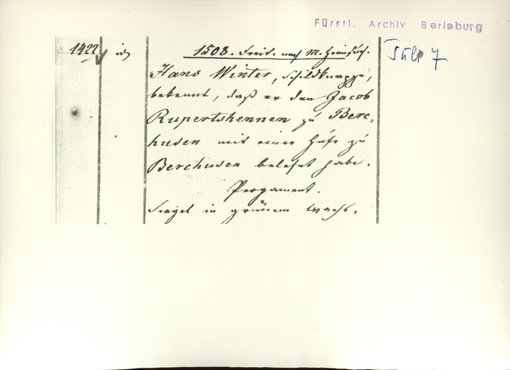 Fürstl. Archiv Berleburg
1422
1508. Freit. nach M.
Hans Winter, Schildknappe,
bekennt, daß er den Jacob
Rupertshennen zu Berc-
husen mit einer Hufe zu
Berchusen belehnt habe.
Pergament.
Siegel in grünem Wachs.